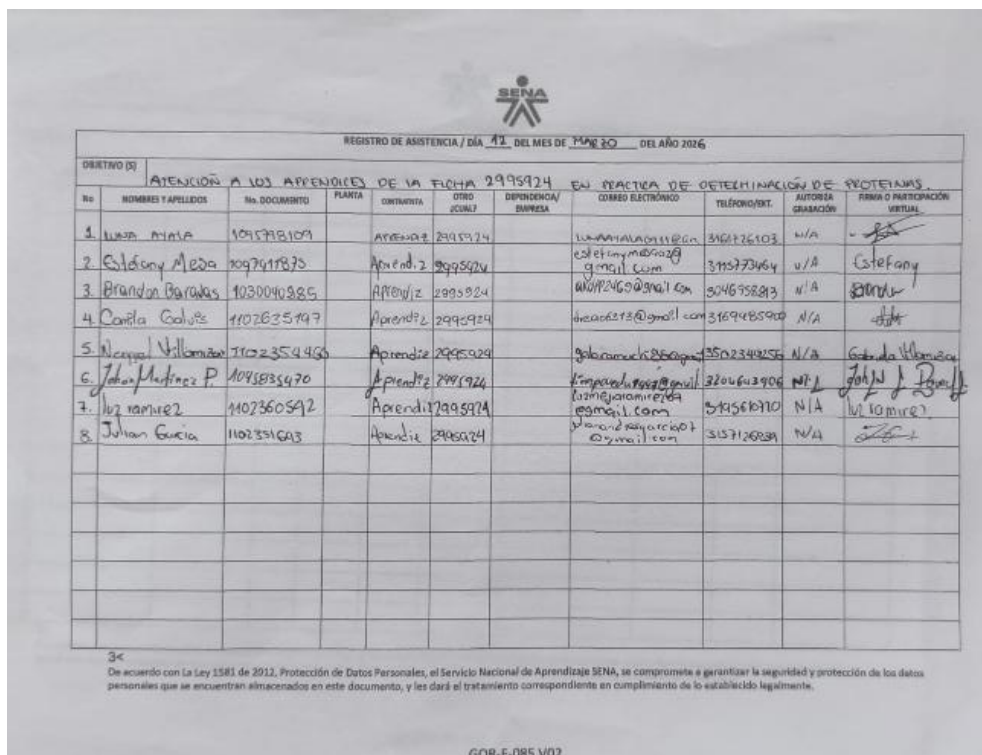 SENA
REGISTRO DE ASISTENCIA / DÍA 12 DEL MES DE MARZO DEL AÑO 2026
OBJETIVO (S)
ATENCIÓN A LOS APRENDICES DE LA FICHA 2995924 EN PRACTICA DE DETERMINACIÓN DE PROTEINAS.
No NOMBRES Y APELLIDOS No. DOCUMENTO PLANTA CONTRATISTA OTRO ¿CUAL? DEPENDENCIA/ EMPRESA CORREO ELECTRÓNICO TELÉFONO/EXT. AUTORIZA GRABACIÓN FIRMA O PARTICIPACIÓN VIRTUAL
1. LUNA AYALA 1095798109 APRENDIZ 2995924 3161726103 N/A
2. Estefany Mesa 1097911875 Aprendiz 2995924 gmail.com 3115773464 N/A Estefany
3. Brandon Baradas 1030040985 Aprendiz 2995924 3046958813 N/A
4. Camila Galvis 1102635197 Aprendiz 2995924 3169485900 N/A
5. Villamizar Aprendiz 2995924 3502349256 N/A Gabriela Villamizar
6. Johan Martinez P. 1095835470 Aprendiz 2995924 3204643906 N/A
7. luz ramirez 1102360592 Aprendiz 2995924 @gmail.com 3195610770 N/A luz ramirez
8. Julian Garcia 1102351693 Aprendiz 2995924 @gmail.com 3157126939 N/A
3<
De acuerdo con La Ley 1581 de 2012, Protección de Datos Personales, el Servicio Nacional de Aprendizaje SENA, se compromete a garantizar la seguridad y protección de los datos
personales que se encuentran almacenados en este documento, y les dará el tratamiento correspondiente en cumplimiento de lo establecido legalmente.
GOR-F-085 V02